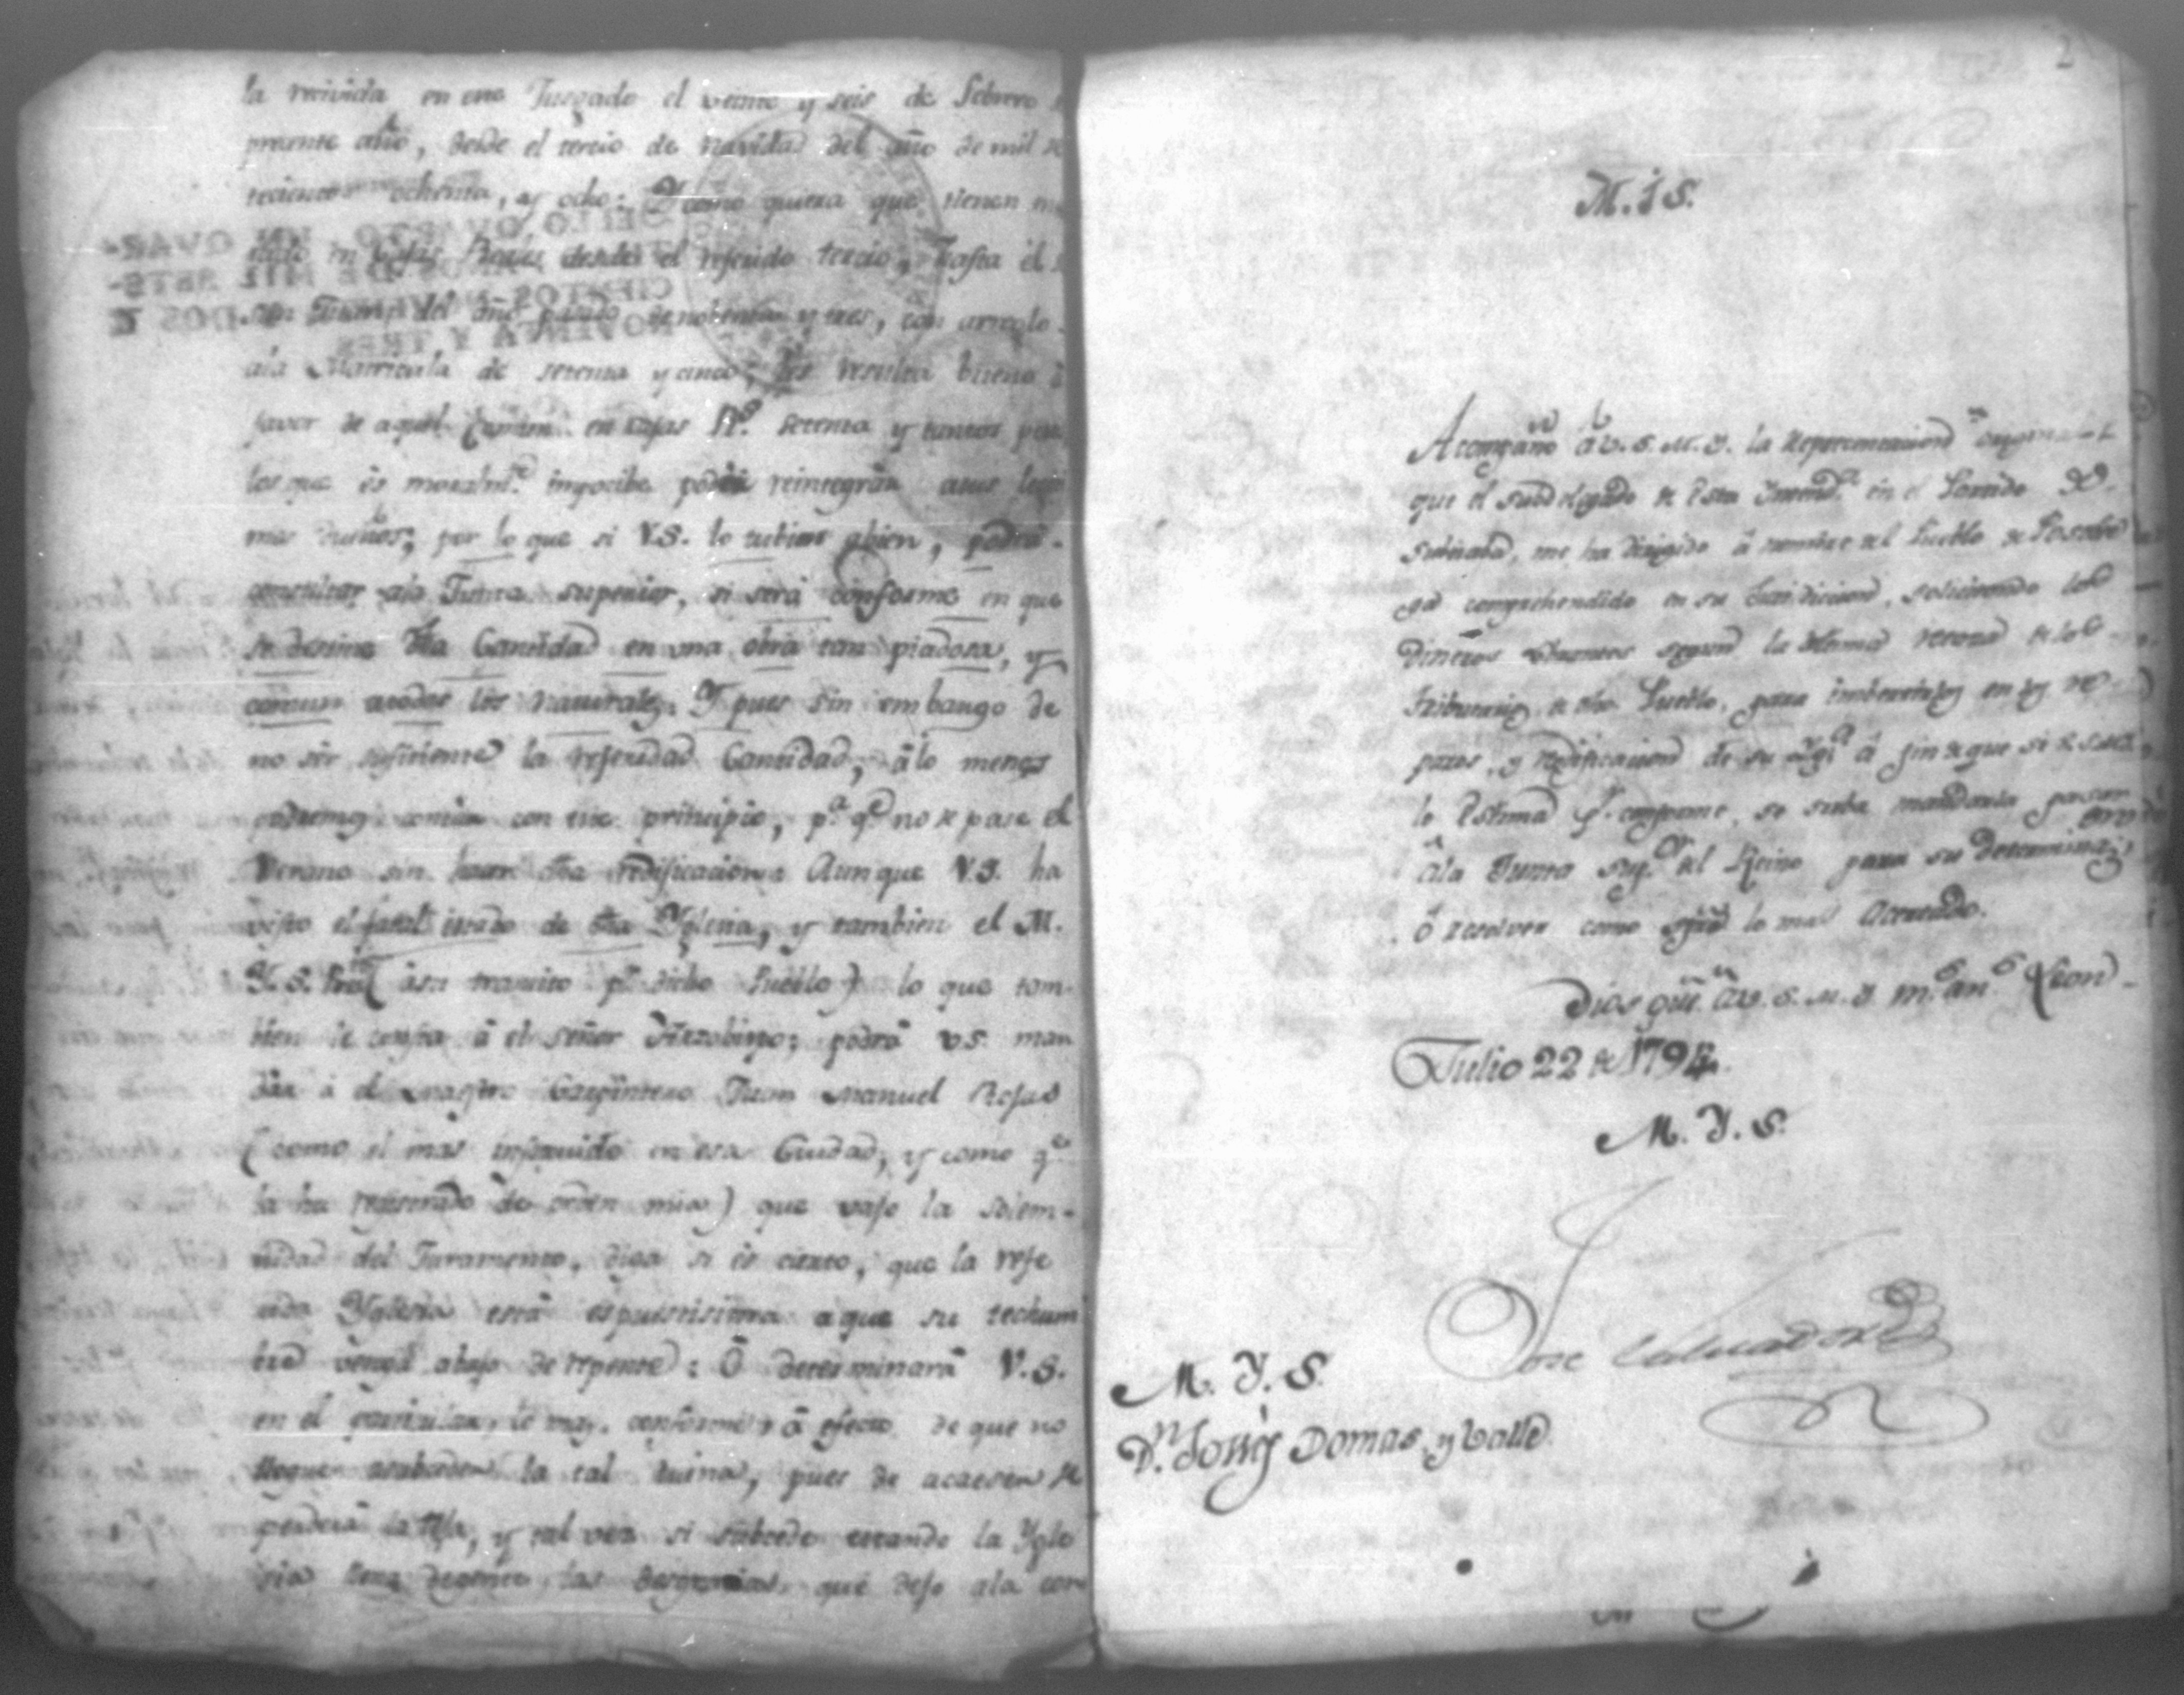 la recivida en ese Juzgado el veinte y seis de Febrero
presente año, desde el tercio de navidad del año de mil se
tecientos ochenta, y ocho: Y como quiera que tienen
en Cajas Reales desde el referido tercio, hasta el
San Juan del año pasado de nobenta y tres, con arreglo
ala Matricula de setenta y cinco; les resulta bueno à
favor de aquel Comun en cajas R.s setenta y tantos pes
los que és moralm.te imposible podér reintegrár asus legi
mos dueños; por lo que si V.S. lo tubiere abien, podrá
consultar ala Junta superior, si será conforme en que
se destine dha Cantidad en una obra tan piadosa, y
comun atodos los naturales. Y pues sin embaugo de
no sér suficiente la referidad Cantidad, álo menos
podremos comenzar con ese principio, p.a q.e no se pase el
Verano sin hacer dha redificacion. Aunque V.S. ha
visto el fatal estado de dha Yglesia, y tambien el M.
Y. S. Pres.te (àsu transito p.r dicho Pueblo) lo que tam-
bien le consta à el señor Arzobispo; podrá V.S. man
dàr à el maestro Carpintero Juan Manuel Rosas
(como el mas instruido en esa Ciudad, y como q.e
la ha rejistrado de orden mia) que vajo la solem-
nidad del Juramento, diga si és cierto, que la refe
rida Yglesia está espuestisima aque su techum
bre venga abajo de repente: Ó determinará V.S.
en el particular, lo mas conforme, à efecto de que no
llegue asubceder la tal ruina, pues de acaeser se
perderá la teja, y tal vez si subcede estando la Ygle
sia llena de gente, las desgracias que dejo ala con
2
M. i S.
Acompaño á V. S. M. Y. la Representacion original
que el Subdelegado de Esta Intend.a en el Partido de
Subtiaba, me ha dirigido á nombre del Pueblo de Posolte
ga comprehendido en su Jurisdicion, solicitando los
Dineros sobrantes segun la ultima retasa de los
tributarios de dho Pueblo, para imbertirlos en los re
paros, y redificacion de su Ygl.a á fin de que si V.S.
lo Estima p.r conforme, se sirba mandarla pasar
àla Junta sup.or del Reino para su Determinaz.n
ó resolver como siempre lo mas acertado.
Dios gũe. à V. S. M. Y. m.s an.s Leon
Julio 22 de 1794.
M. Y. S.
Jose Salvador
M. Y. S.
D.n Josséf Domas, y Valle